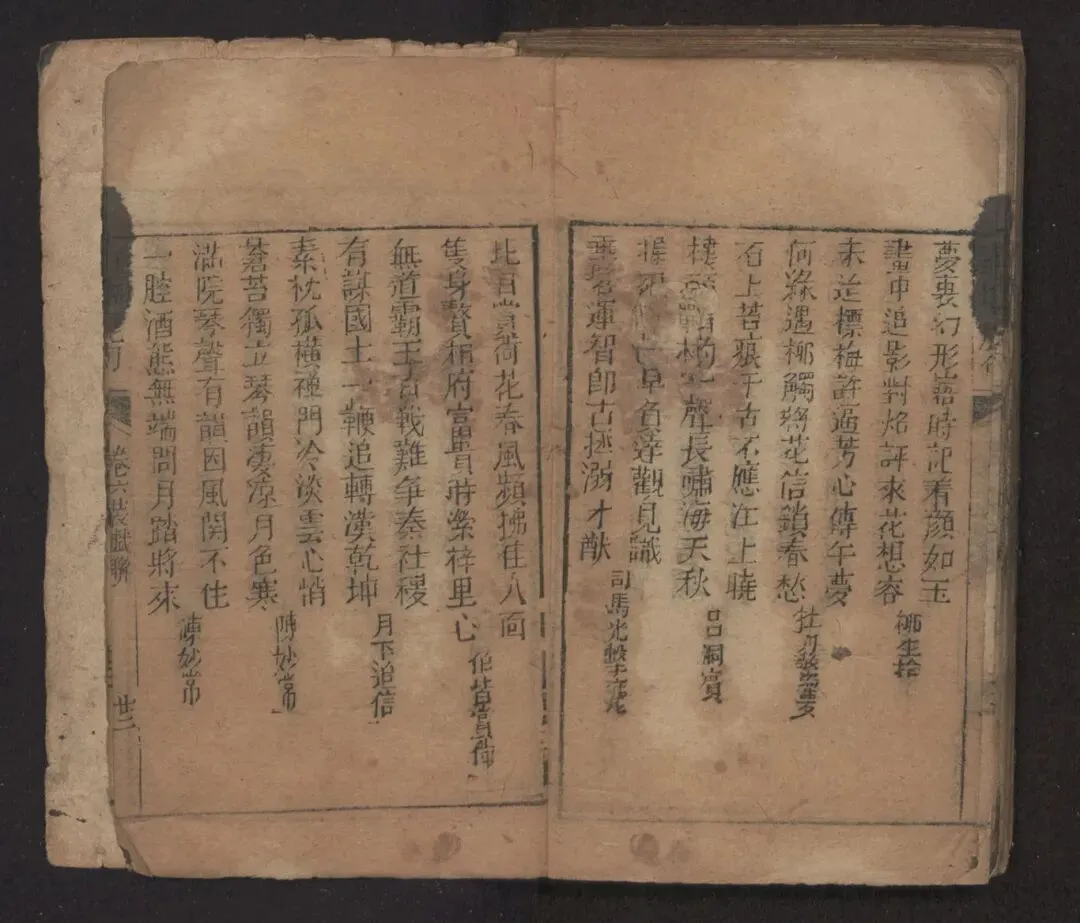 夢裏幻形離時記看顏如玉
畫中追影對焰評來花想容
柳生拾
未迨標梅許適芳心傳午夢
何緣遇柳觸將花信鎖春愁
牡丹
石上苔痕千古不應江上曉
樓 聲長嘯海天秋
呂洞賓
握 早負達觀見識
運智即古拯溺才猷
司馬光擊
此日賞荷花春風頻拂在八面
隻身贅相府富貴
梓里心
伯皆賞荷
無道霸王百戰難爭秦社稷
有謀國士一鞭追轉漢乾坤
月下追信
素枕孤橫禪門冷淡雲心悄
蒼苔獨立琴韻凄凉月色寒
陳妙常
滿院琴聲有韻因風関不住
一腔酒態無端問月踏將來
陳妙常
卷六 賦聯
廿二